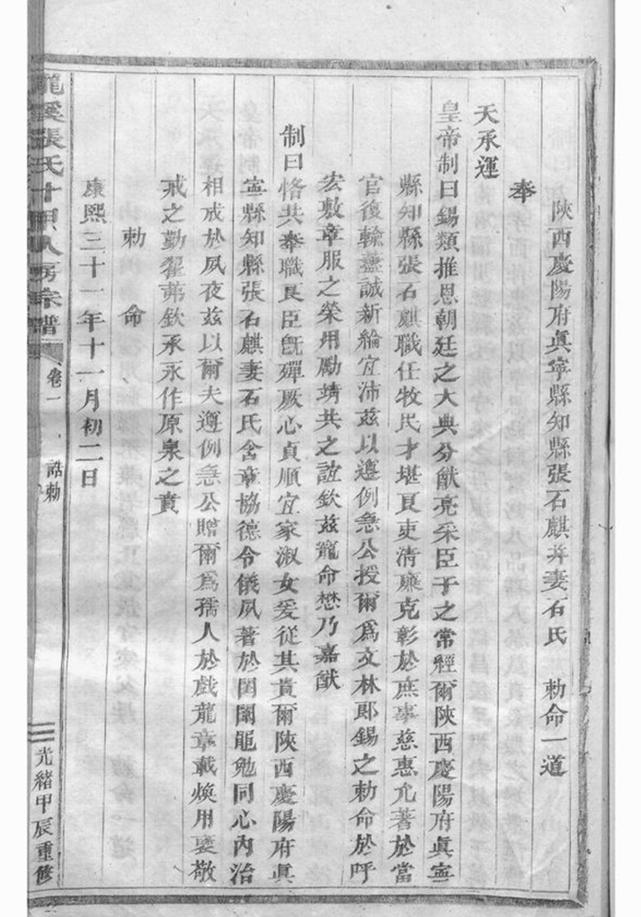 陜西慶陽府真寧縣知縣張石麒并妻石氏　勅命一道
奉
天承運
皇帝制曰錫類推恩朝廷之大典分猷亮采臣子之常經爾陜西慶陽府真寧
縣知縣張石麒職任牧民才堪良吏清廉克彰於庶事慈惠允著於當
官復輸盡誠新綸宜沛茲以遵例急公授爾為文林郎錫之勅命於呼
宏敷章服之榮用勵靖共之誼欽茲寵命懋乃嘉猷
制曰恪共奉職良臣旣殫厥心貞順宜家淑女爰從其貴爾陜西慶陽府真
寧縣知縣張石麒妻石氏含章協德令儀夙著於閨閫黽勉同心內治
相戒於夙夜茲以爾夫遵例急公贈爾為孺人於戲龍章載煥用褒敬
戒之勤翟茀欽承永作原泉之賁
勅　命
康熙三十一年十一月初二日
龍溪張氏十甲八房宗譜
卷一　誥勅
光緒甲辰重修